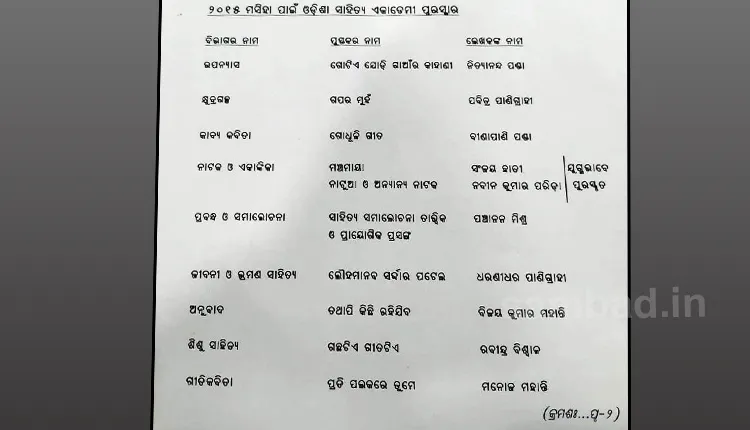 ୨୦୧୫ ମସିହା ପାଇଁ ଓଡ଼ିଶା ସାହିତ୍ୟ ଏକାଡେମୀ ପୁରସ୍କାର
ବିଭାଗର ନାମ ପୁସ୍ତକର ନାମ ଲେଖକଙ୍କ ନାମ
ଉପନ୍ୟାସ ଗୋଟିଏ ଯୋଡ଼ି ଗାଆଁର କାହାଣୀ ନିତ୍ୟାନନ୍ଦ ପଣ୍ଡା
କ୍ଷୁଦ୍ରଗଳ୍ପ ଗପର ମୁହଁ ପବିତ୍ର ପାଣିଗ୍ରାହୀ
କାବ୍ୟ କବିତା ଗୋଧୂଳି ଗୀତ ବୀଣାପାଣି ପଣ୍ଡା
ନାଟକ ଓ ଏକାଙ୍କିକା ମଞ୍ଚମାୟା ସଂଜୟ ହାତୀ ଯୁଗ୍ମଭାବେ
ନାଟୁଆ ଓ ଅନ୍ୟାନ୍ୟ ନାଟକ ନବୀନ କୁମାର ପରିଡ଼ା ପୁରସ୍କୃତ
ପ୍ରବନ୍ଧ ଓ ସମାଲୋଚନା ସାହିତ୍ୟ ସମାଲୋଚନା ତାତ୍ତ୍ୱିକ ପଞ୍ଚାନନ ମିଶ୍ର
ଓ ପ୍ରାୟୋଗିକ ପ୍ରସଙ୍ଗ
ଜୀବନୀ ଓ ଭ୍ରମଣ ସାହିତ୍ୟ ଲୌହମାନବ ସର୍ଦ୍ଦାର ପଟେଲ ଧରଣୀଧର ପାଣିଗ୍ରାହୀ
ଅନୁବାଦ ତଥାପି କିଛି ରହିଯିବ ବିଜୟ କୁମାର ମହାନ୍ତି
ଶିଶୁ ସାହିତ୍ୟ ଗଛଟିଏ ଗୀତଟିଏ ରବୀନ୍ଦ୍ର ବିଶ୍ୱାଳ
ଗୀତିକବିତା ପ୍ରତି ପଲକରେ ତୁମେ ମନୋଜ ମହାନ୍ତି
(କ୍ରମଶଃ...ପୃ-୨)
sambad.in